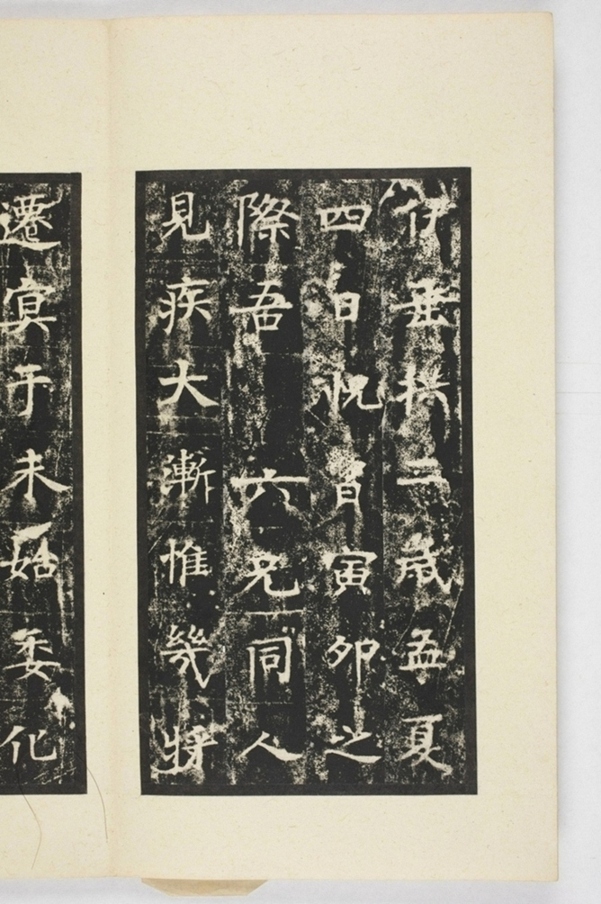 伊垂拱二歲孟夏
四日怳曶寅卯之
際吾六兄同人
見疾大漸惟幾將
遷㝠于未始委化